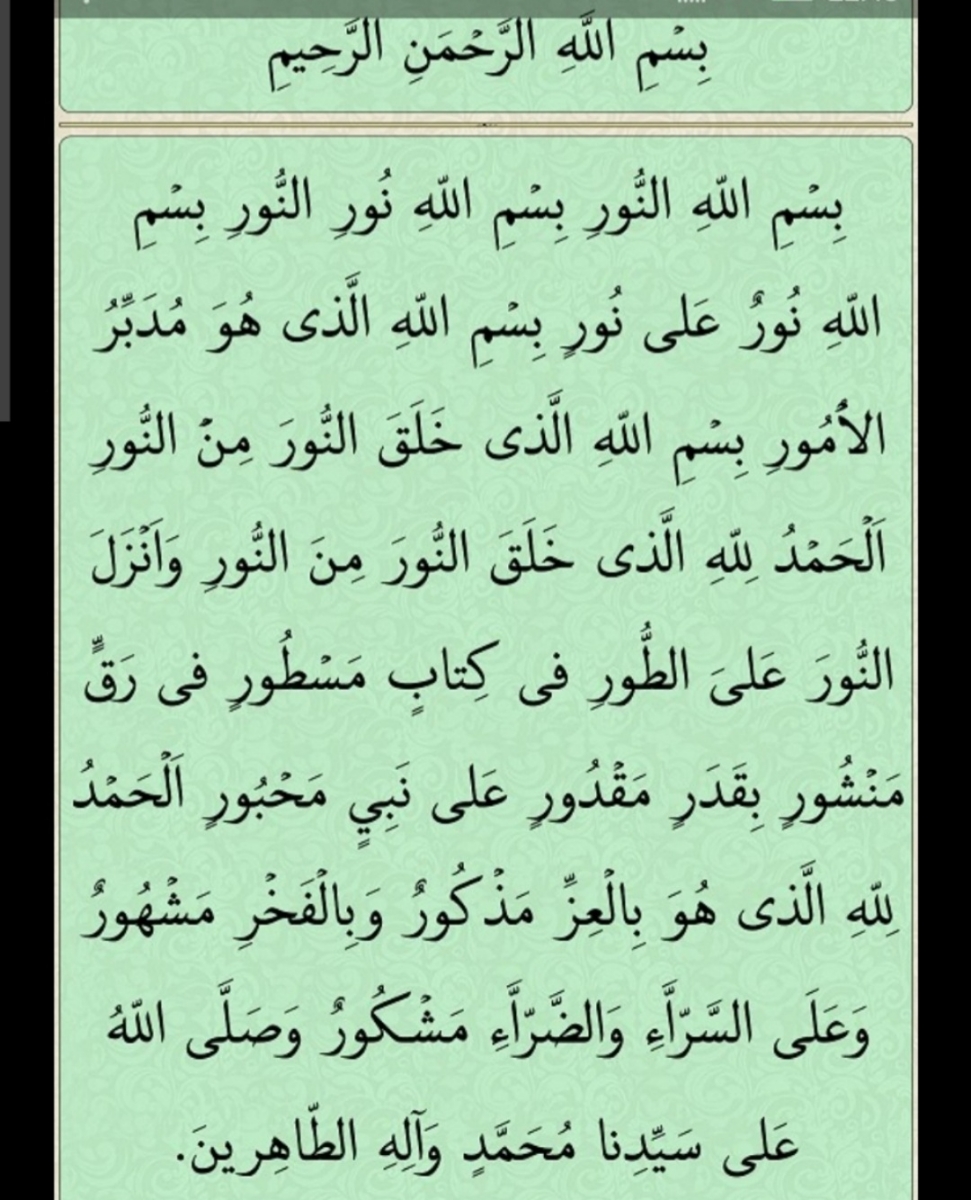 بِسْمِ اللَّهِ الرَّحْمَنِ الرَّحِيمِ
بِسْمِ اللّهِ النُّورِ بِسْمِ اللّهِ نُورِ النُّورِ بِسْمِ
اللّهِ نُورٌ عَلى نُورٍ بِسْمِ اللّهِ الَّذى هُوَ مُدَبِّرُ
الاُْمُورِ بِسْمِ اللّهِ الَّذى خَلَقَ النُّورَ مِنْ النُّورِ
اَلْحَمْدُ لِلّهِ الَّذى خَلَقَ النُّورَ مِنَ النُّورِ وَاَنْزَلَ
النُّورَ عَلىَ الطُّورِ فى كِتابٍ مَسْطُورٍ فى رَقٍّ
مَنْشُورٍ بِقَدَرٍ مَقْدُورٍ عَلى نَبِيٍ مَحْبُورٍ اَلْحَمْدُ
لِلّهِ الَّذى هُوَ بِالْعِزِّ مَذْكُورٌ وَبِالْفَخْرِ مَشْهُورٌ
وَعَلَى السَّرّاَّءِ وَالضَّرّاَّءِ مَشْكُورٌ وَصَلَّى اللّهُ
عَلى سَيِّدِنا مُحَمَّدٍ وَآلِهِ الطّاهِرينَ.